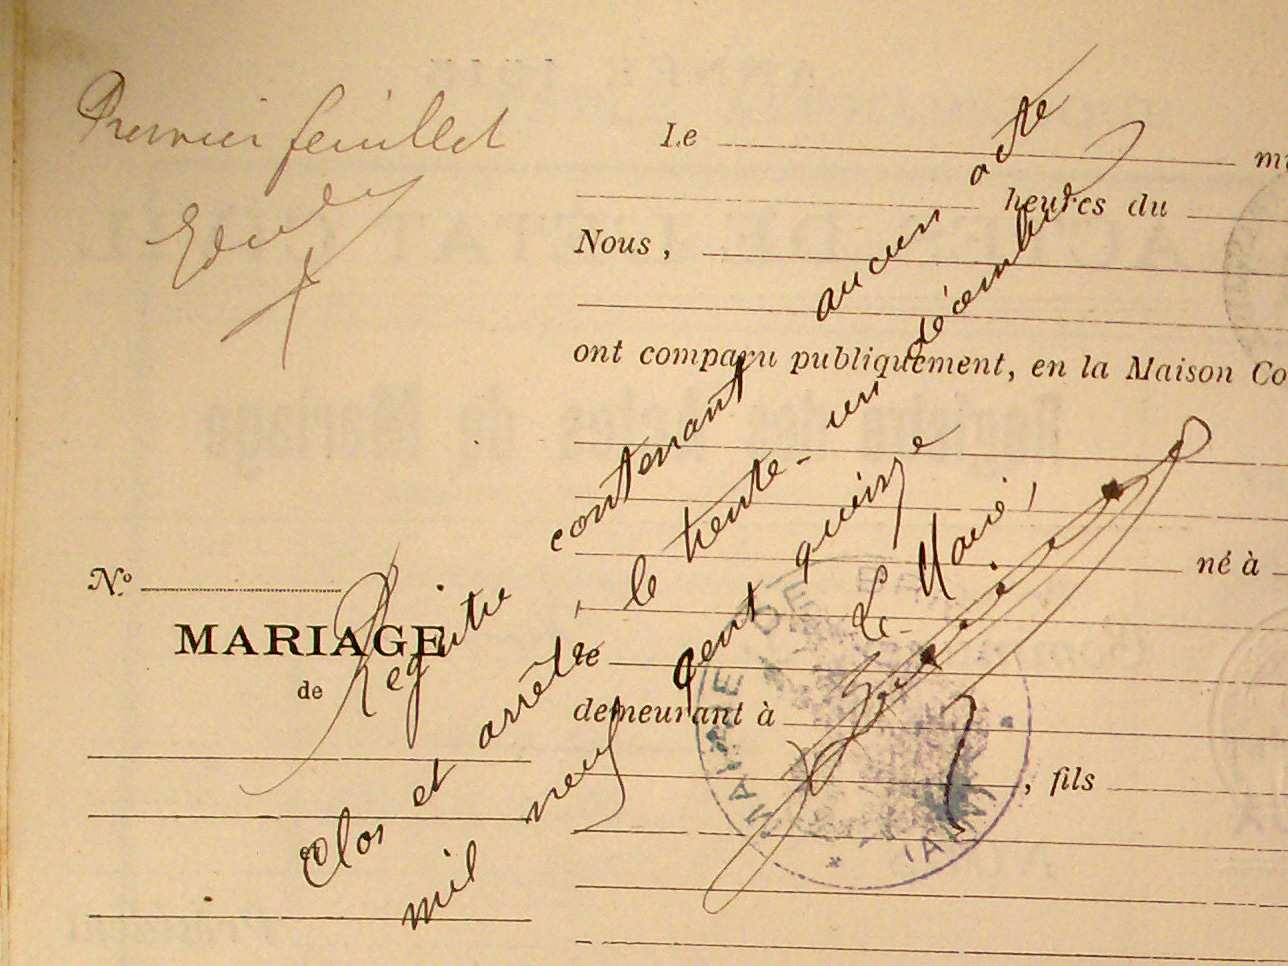 Premier feuillet
Le
heures du
Nous,
ont comparu publiquement, en la Maison Co
né à
le
demeurant à
, fils
N°
MARIAGE
de
Registre contenant aucun acte
Clos et arrêté, le trente-un décembre
mil neuf cent quinze
Le Maire,
MAIRIE DE
(AIN)